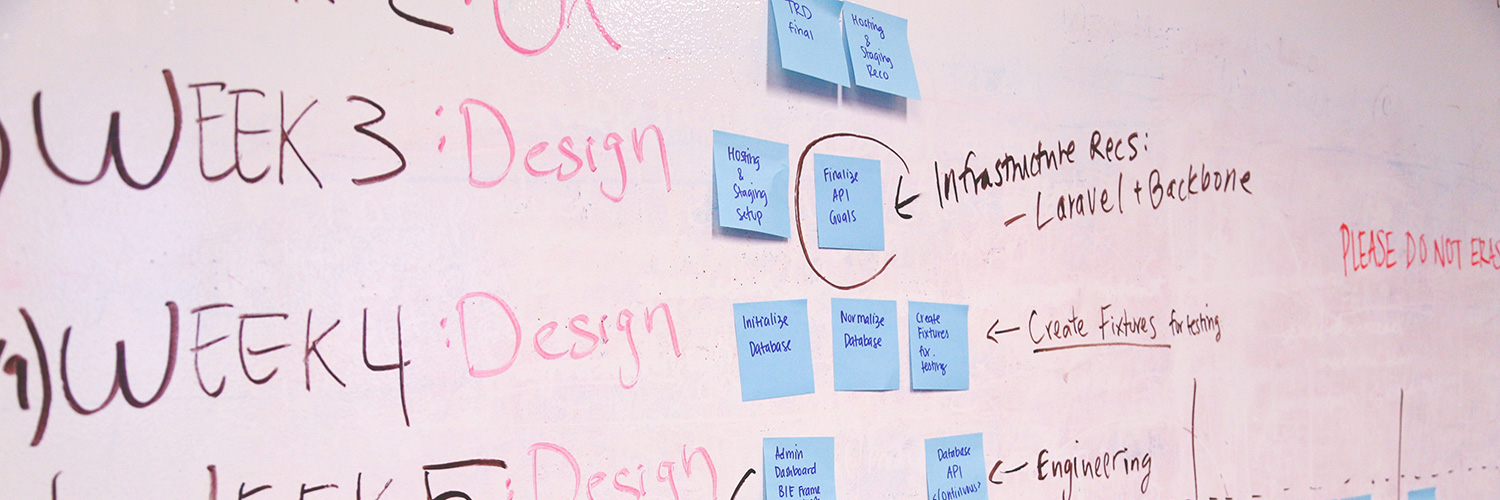 TRD
final
Hosting
&
Staging
Reco
WEEK 3 : Design
Hosting
&
Staging
Setup
Finalize
API
Goals
Infrastructure Recs:
- Laravel + Backbone
PLEASE DO NOT ERAS
WEEK 4 : Design
Initialize
Database
Normalize
Database
Create
Fixtures
for
testing
Create Fixtures for testing
WEEK 5 : Design
Admin
Dashboard
BIE Frame
Database
API
Engineering